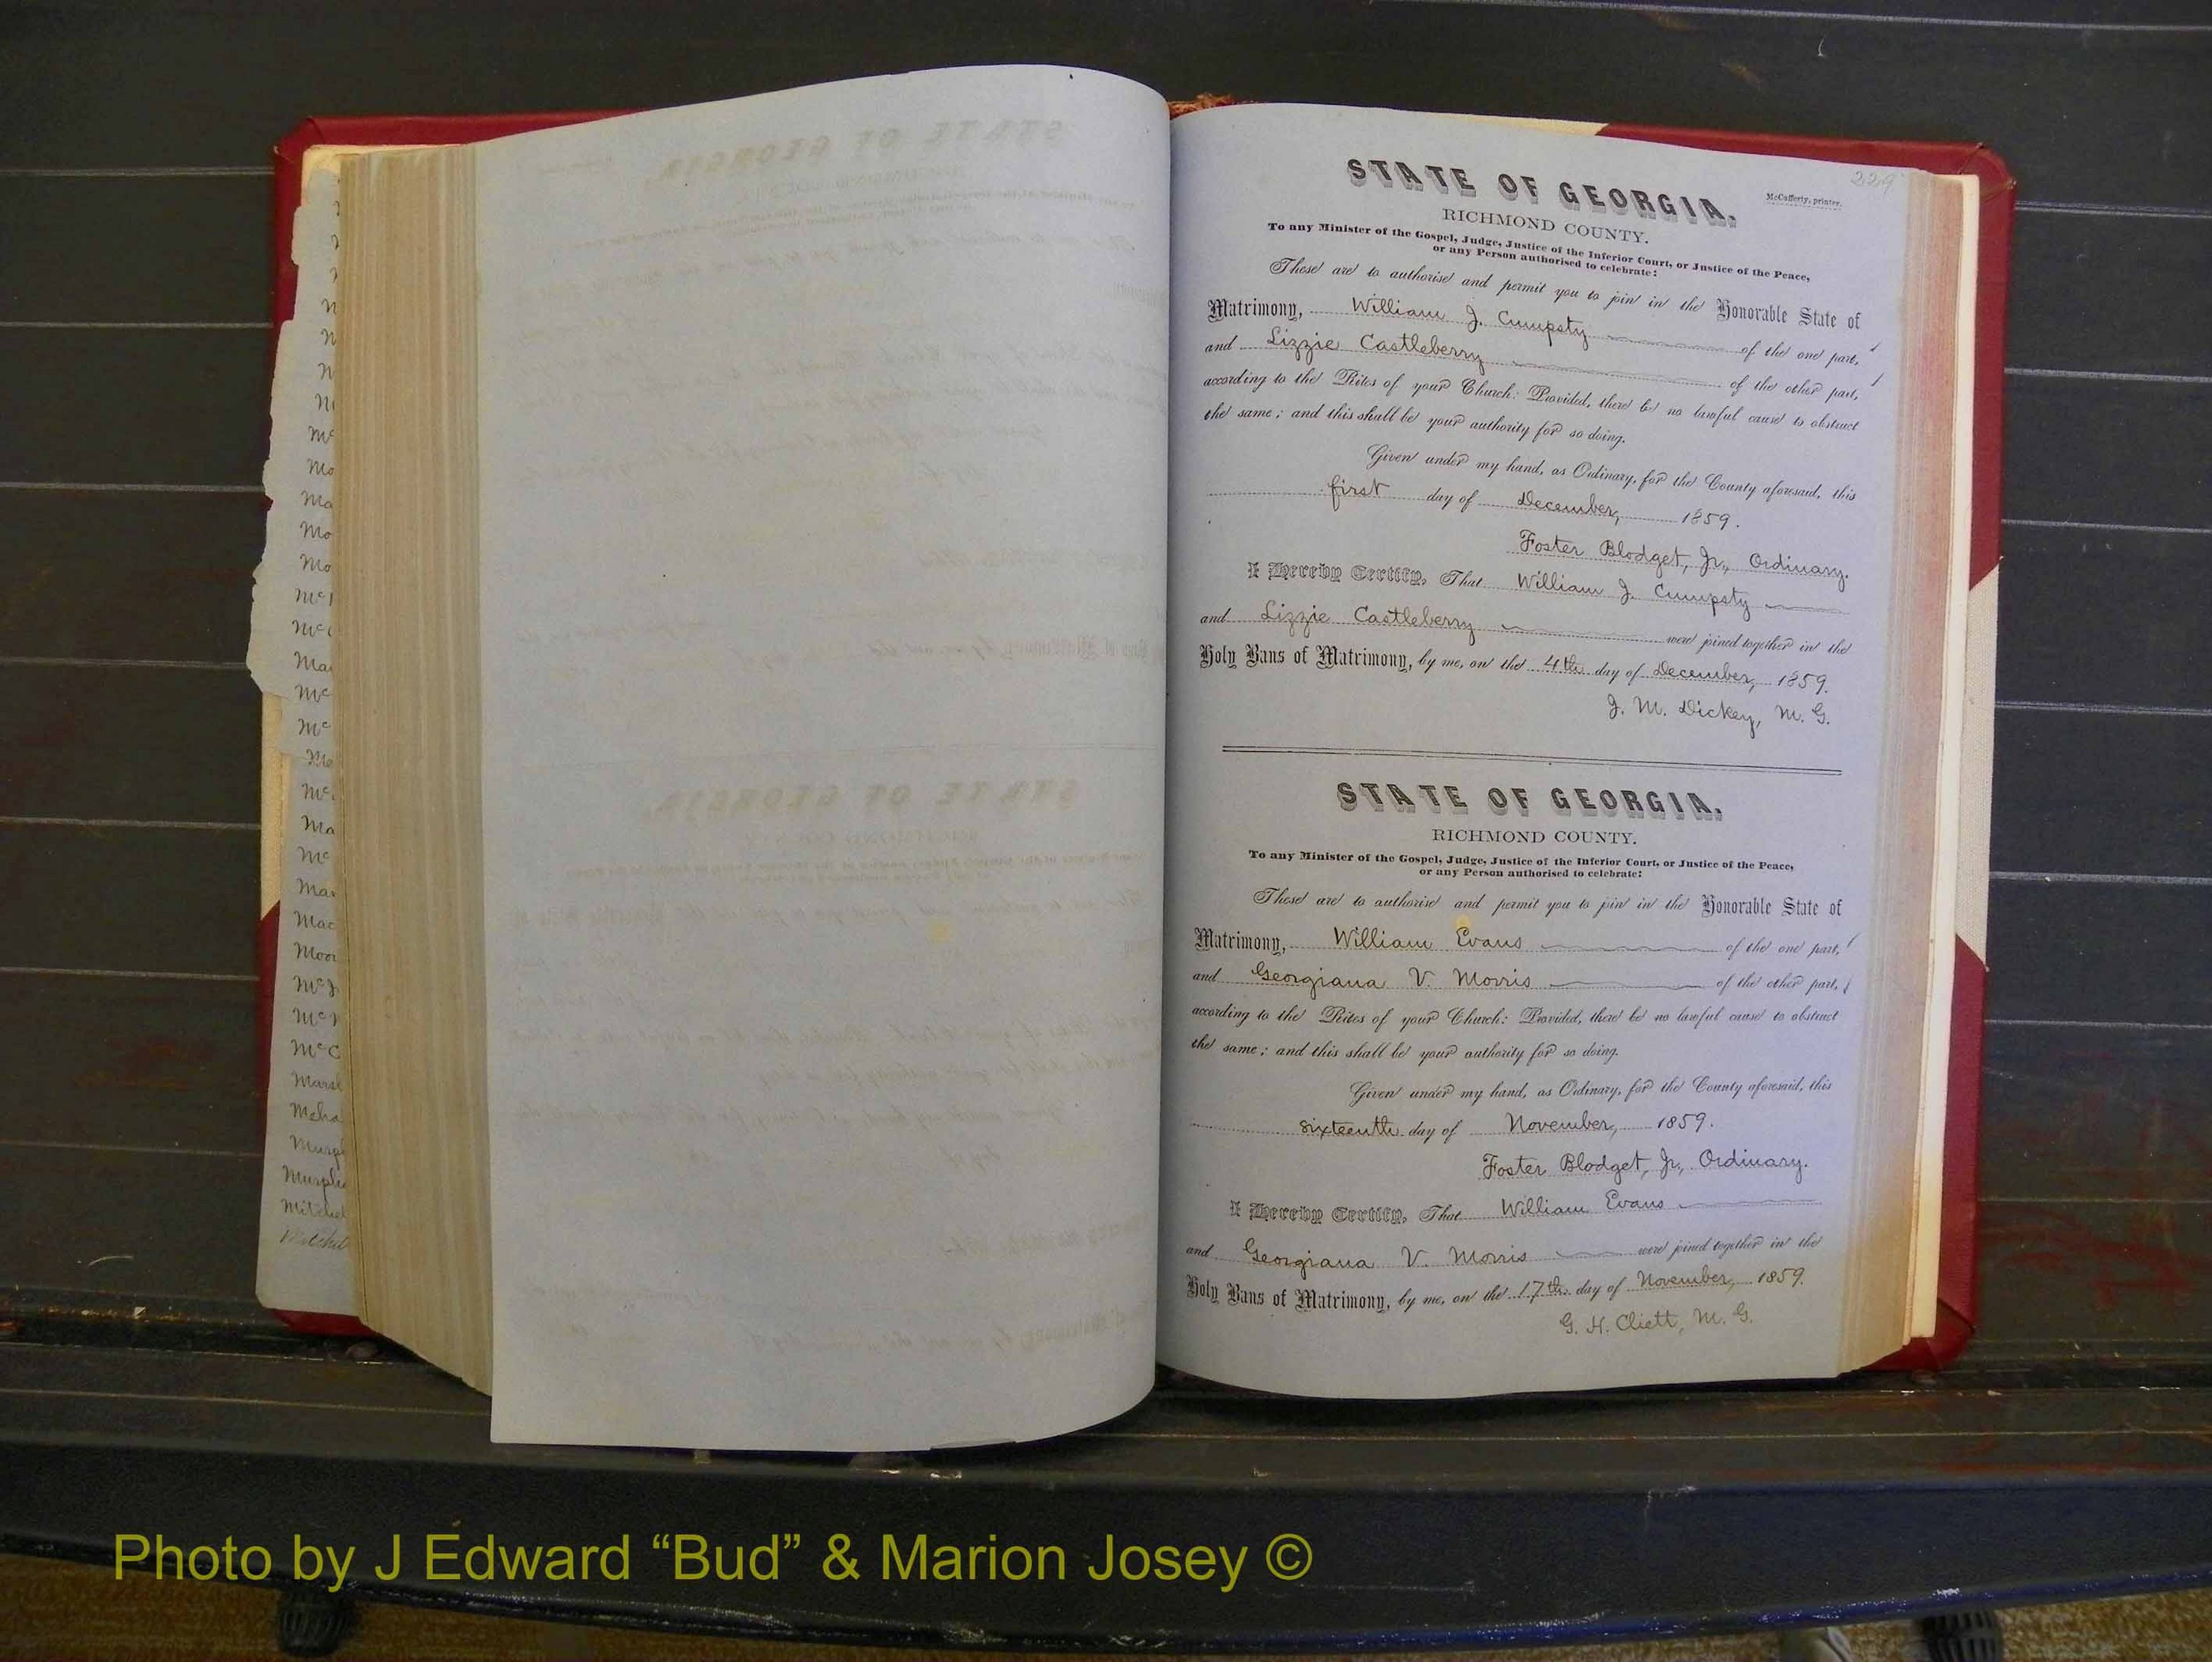 229
STATE OF GEORGIA.
McCafferty, printer.
RICHMOND COUNTY.
To any Minister of the Gospel, Judge, Justice of the Inferior Court, or Justice of the Peace,
or any Person authorised to celebrate:
These are to authorise and permit you to join in the Honorable State of
Matrimony, William J. Cumpsty of the one part,
and Lizzie Castleberry of the other part,
according to the Rites of your Church: Provided, there be no lawful cause to obstruct
the same; and this shall be your authority for so doing.
Given under my hand, as Ordinary, for the County aforesaid, this
first day of December, 1859.
Foster Blodget, Jr., Ordinary.
I Hereby Certify, That William J. Cumpsty
and Lizzie Castleberry were joined together in the
Holy Bans of Matrimony, by me, on the 4th day of December, 1859.
J. M. Dickey, M. G.
STATE OF GEORGIA.
RICHMOND COUNTY.
To any Minister of the Gospel, Judge, Justice of the Inferior Court, or Justice of the Peace,
or any Person authorised to celebrate:
These are to authorise and permit you to join in the Honorable State of
Matrimony, William Evans of the one part,
and Georgiana V. Morris of the other part,
according to the Rites of your Church: Provided, there be no lawful cause to obstruct
the same; and this shall be your authority for so doing.
Given under my hand, as Ordinary, for the County aforesaid, this
sixteenth day of November, 1859.
Foster Blodget, Jr., Ordinary.
I Hereby Certify, That William Evans
and Georgiana V. Morris were joined together in the
Holy Bans of Matrimony, by me, on the 17th day of November, 1859.
G. H. Cliett, M. G.
Photo by J Edward “Bud” & Marion Josey ©